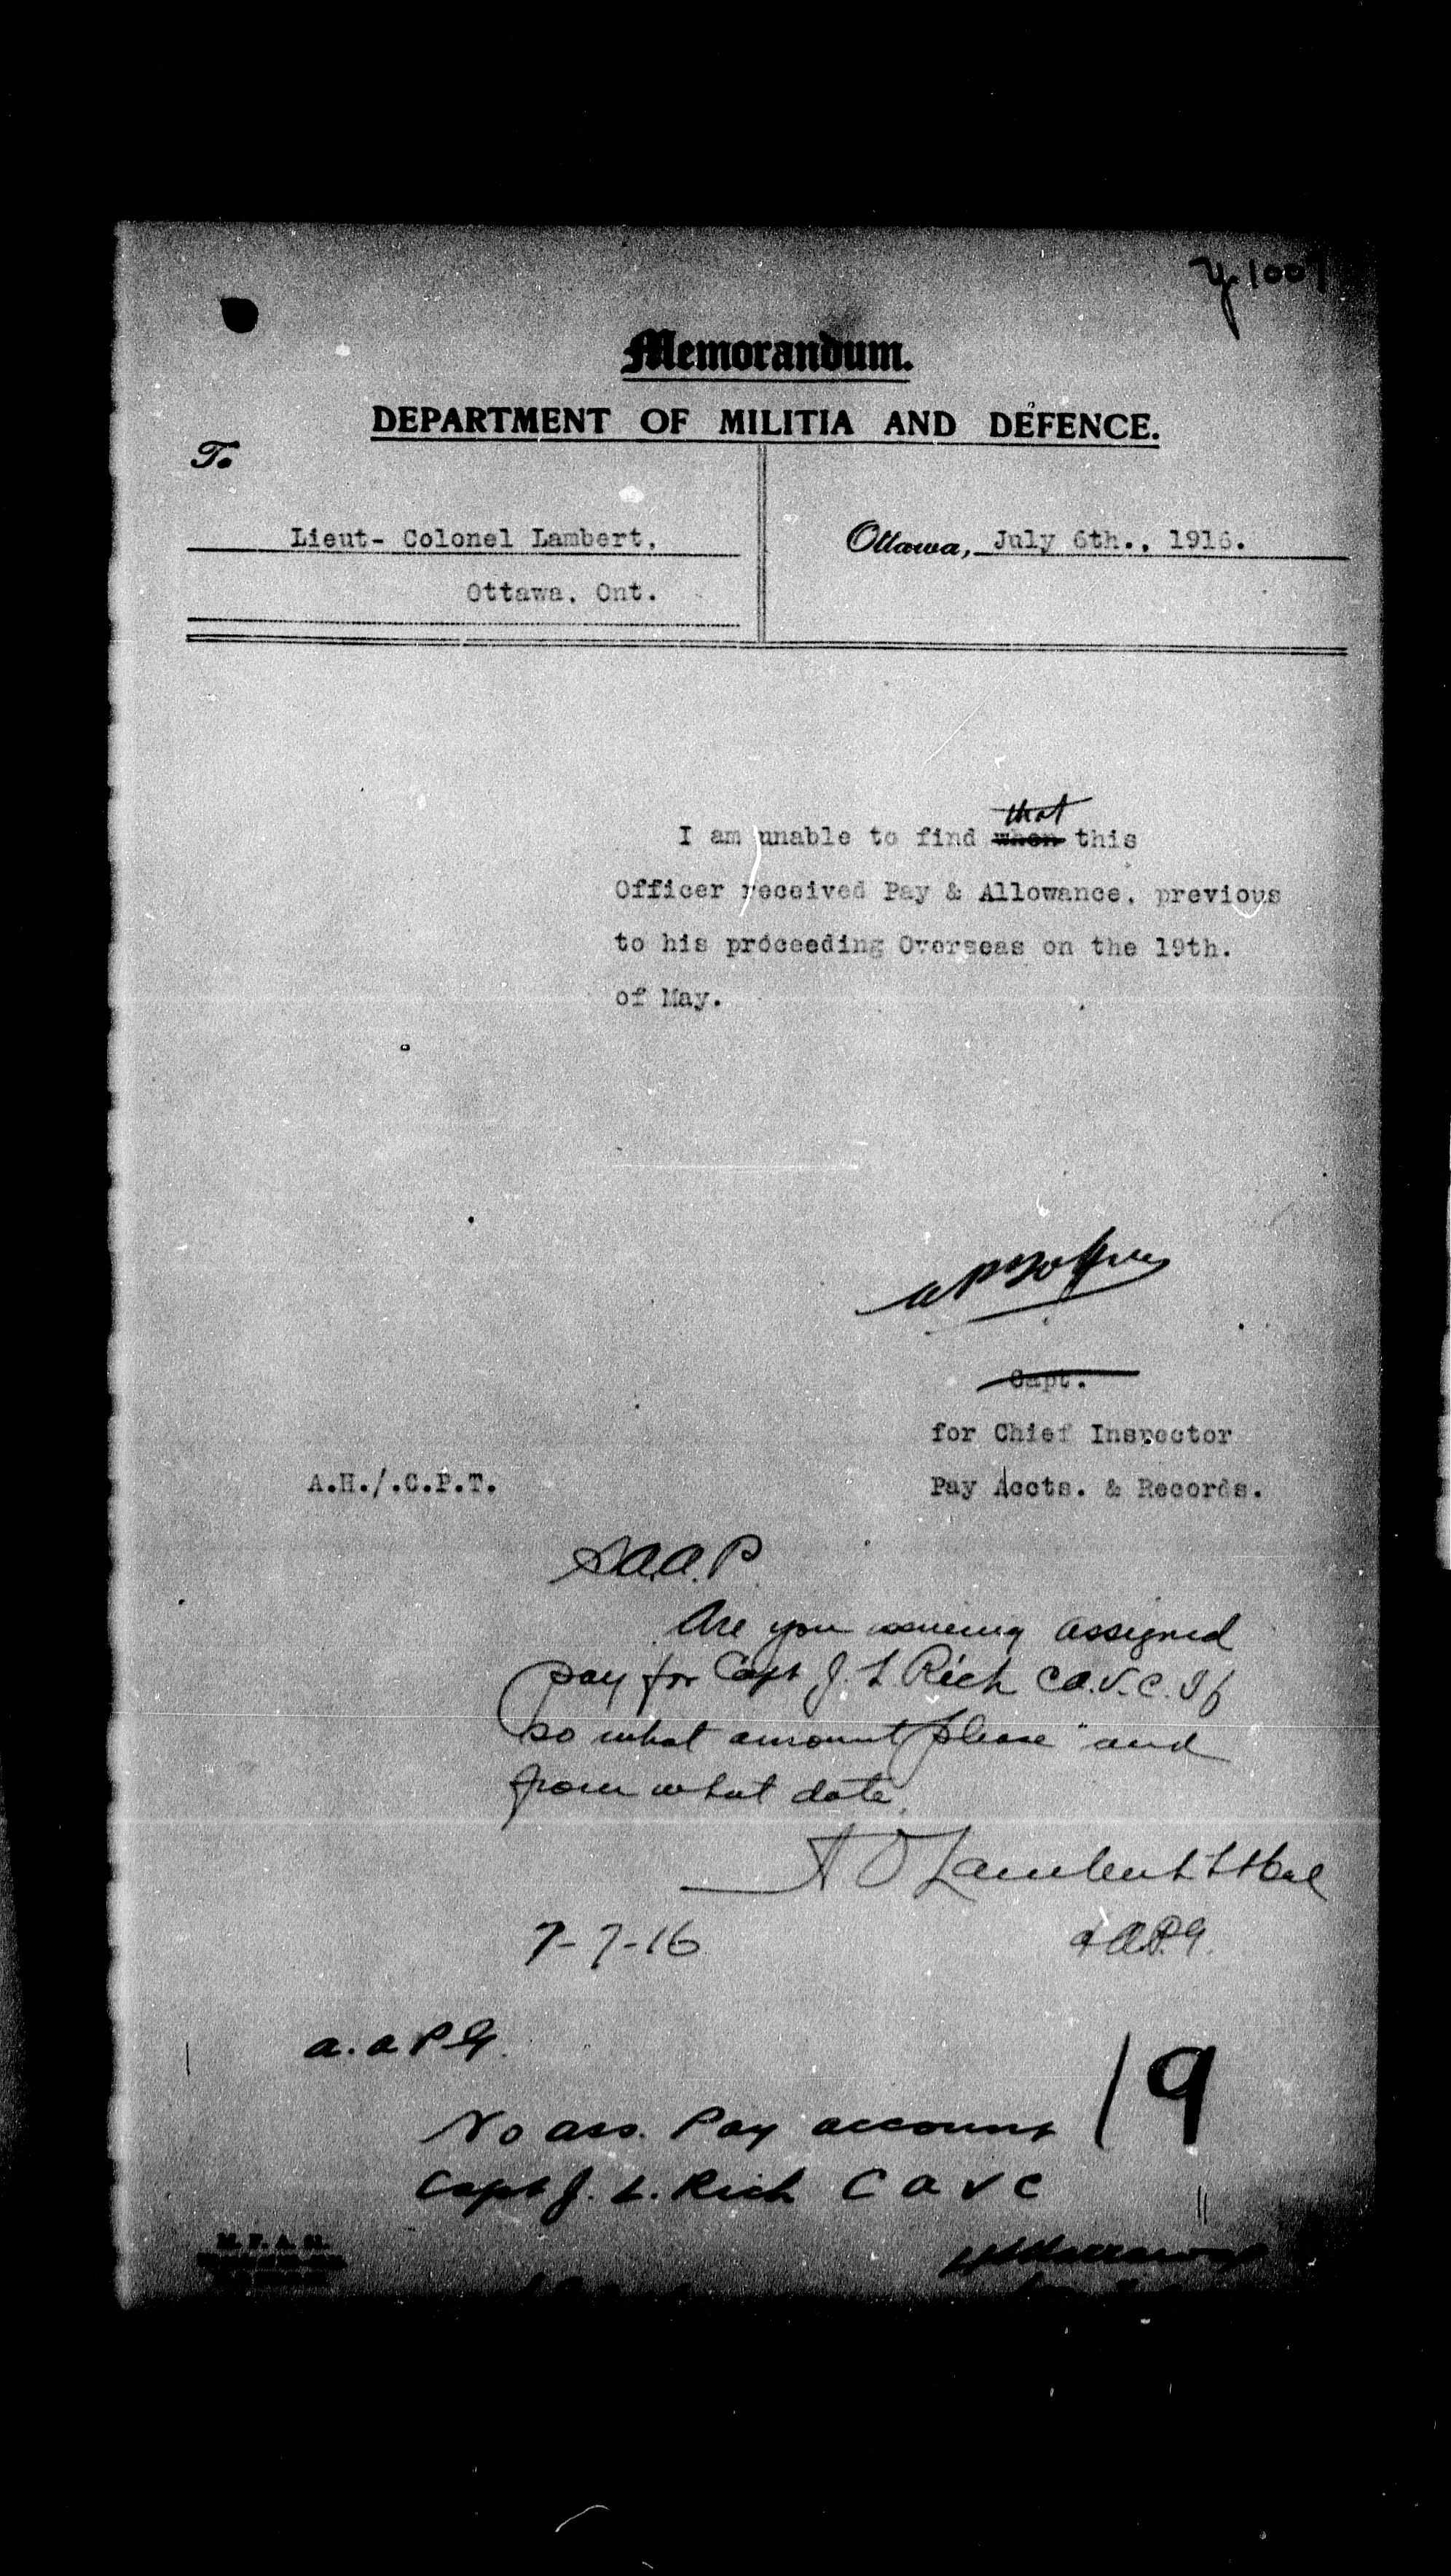 Memorandum.
DEPARTMENT OF MILITIA AND DEFENCE.
To
Lieut- Colonel Lambert,
Ottawa, Ont.
Ottawa, July 6th., 1916.
that
I am unable to find when this
Officer received Pay & Allowance, previous
to his proceeding Overseas on the 19th.
of May.
Capt.
for Chief Inspector
Pay Accts. & Records.
A.H./.C.P.T.
A.A.P.
Are you issuing assigned
pay for Capt J. L. Rich C.A.V.C. If
so what amount please and
from what date.
Lambert Lt Col
7-7-16
A.P.G.
a.a P G.
19
No ass. Pay account
Capt J. L. Rich C A V C